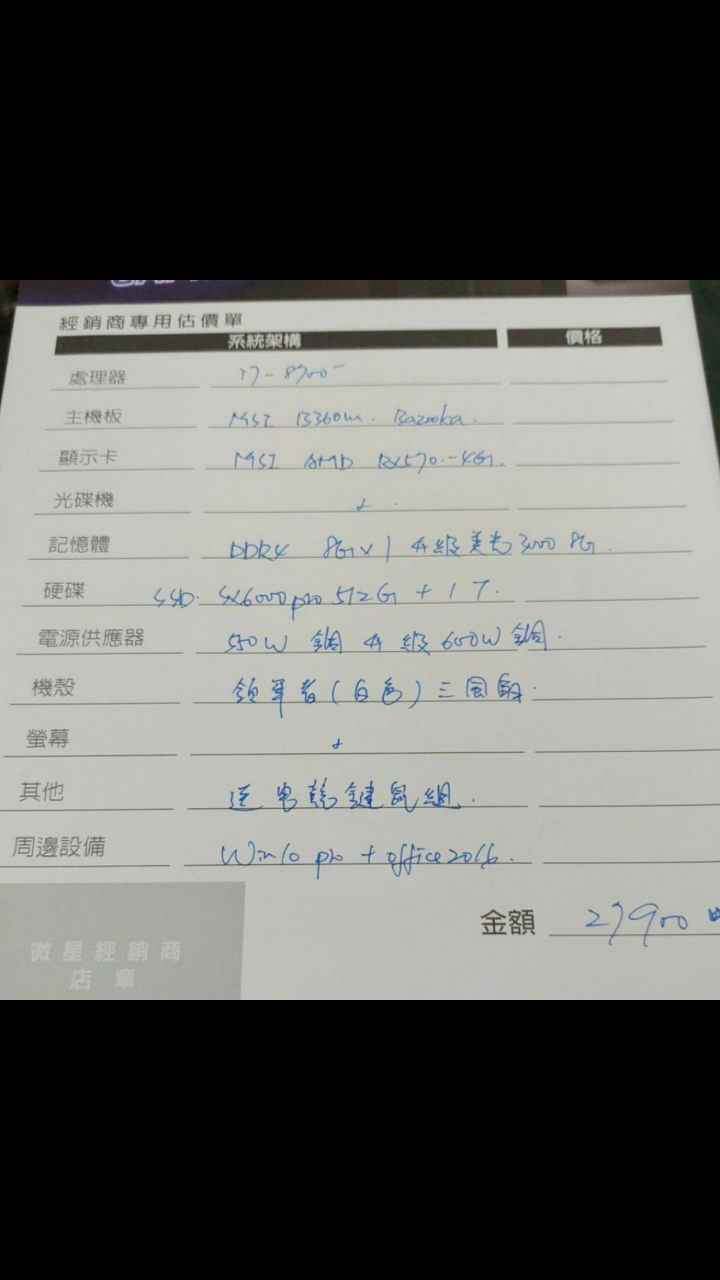 經銷商專用估價單
系統架構 價格
處理器 i7-8700
主機板 MSI B360m. Bazooka.
顯示卡 MSI AMD RX570-4G.
光碟機
記憶體 DDR4 8G x 1 升級美光 3000 8G.
硬碟 SSD. SX6000pro 512G + 1T.
電源供應器 550W 銅 升級 650W 銅.
機殼 領軍者(白色)三風扇.
螢幕
其他 送電競鍵鼠組.
周邊設備 Win10 pro + office2016.
金額 27900
微星經銷商
店章